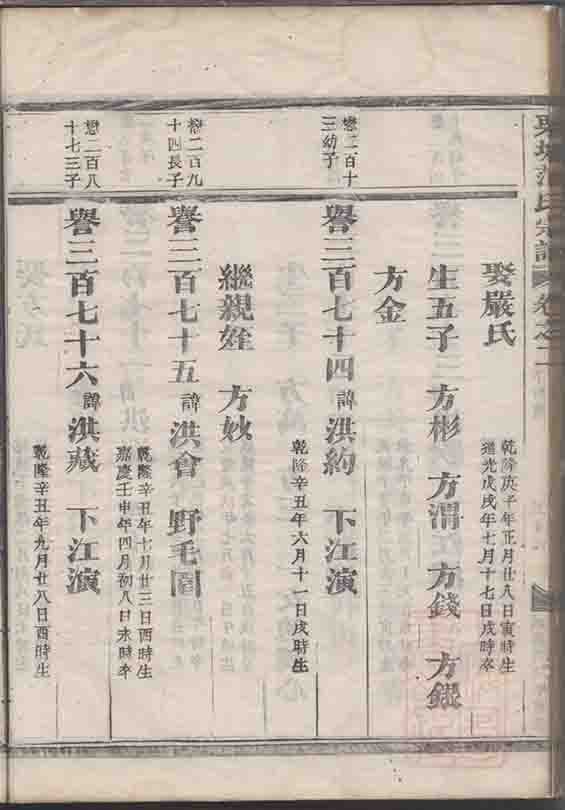 氏宗譜 卷之二
娶嚴氏
乾隆庚子年正月廿八日寅時生
道光戊戌年七月十七日戌時卒
生五子 方彬 方渭 方錢 方鑑
方金
懋二百十
三幼子
譽三百七十四 諱洪約 下江演
乾隆辛丑年六月十一日戌時生
繼親姪 方妙
懋二百九
十四長子
譽三百七十五 諱洪會 野毛圖
乾隆辛丑年七月廿三日酉時生
嘉慶壬申年四月初八日未時卒
懋二百八
十七三子
譽三百七十六 諱洪藏 下江演
乾隆辛丑年九月廿八日酉時生